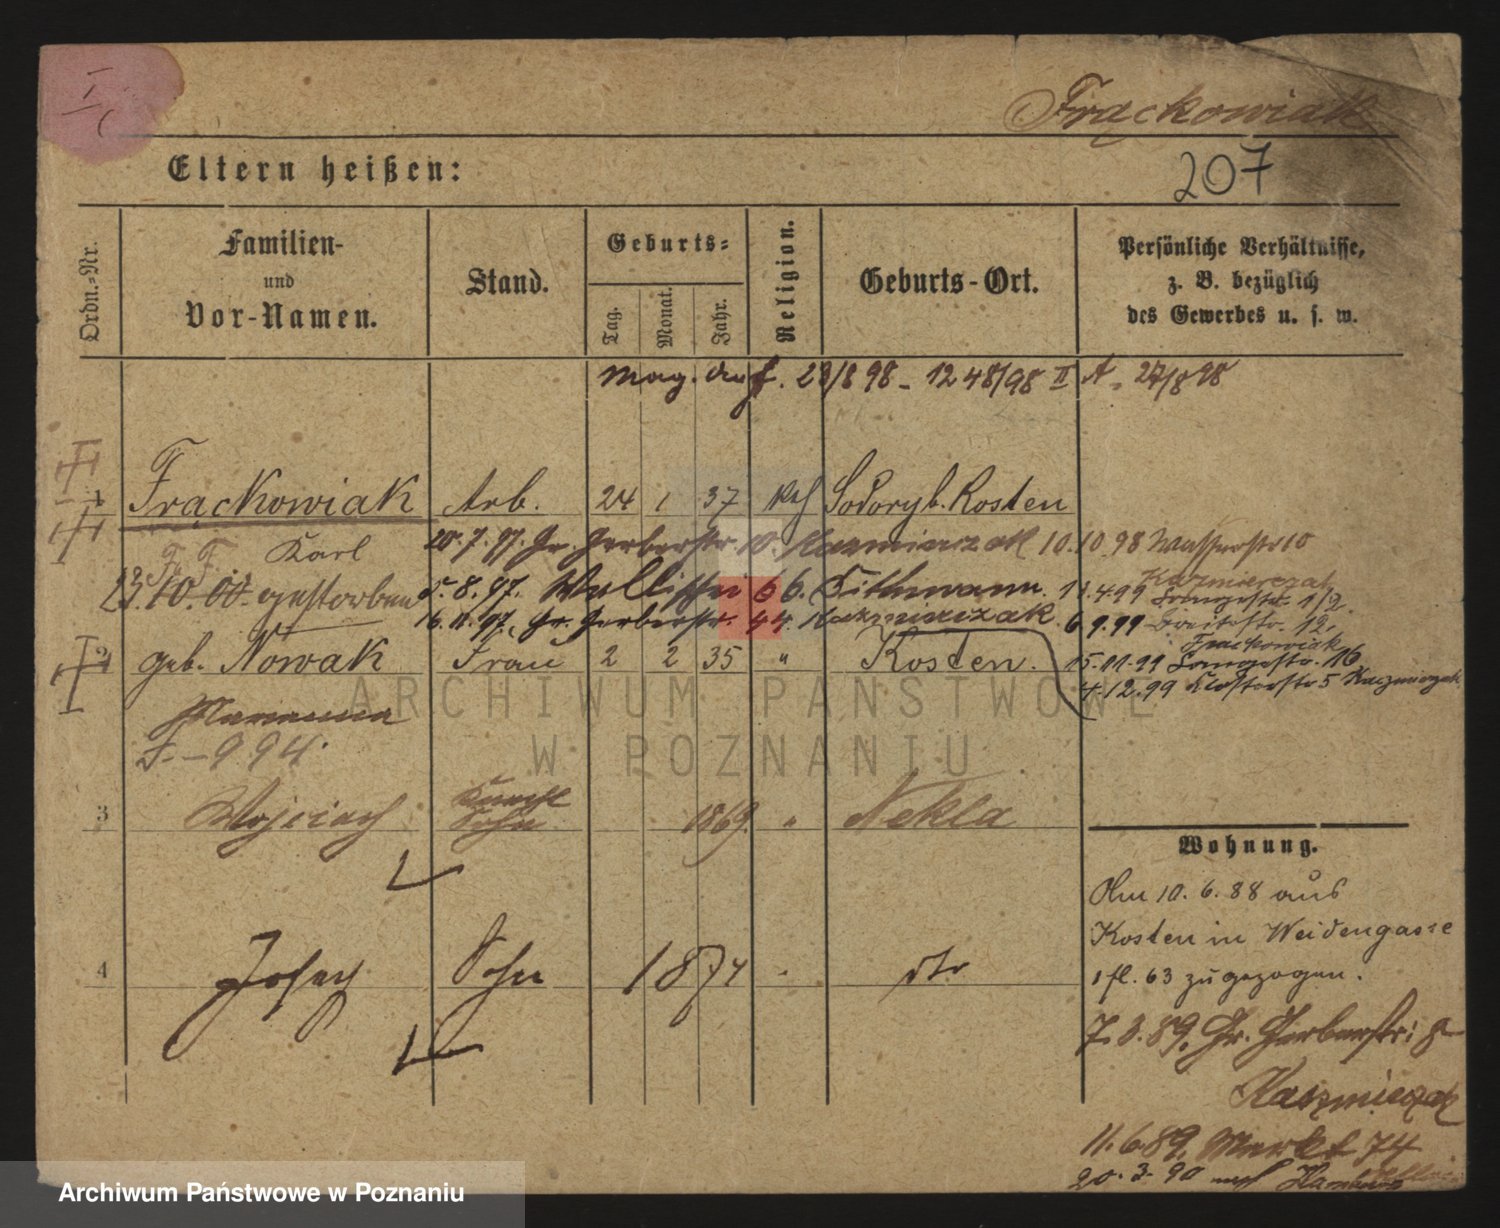 I
C
Frąckowiak
207
Eltern heißen:
Ordn.-Nr.
Familien-
und
Vor-Namen.
Stand.
Geburts-
Tag.
Monat.
Jahr.
Religion.
Geburts-Ort.
Persönliche Verhältnisse,
z. B. bezüglich
des Gewerbes u. s. w.
Mag. Anf. 23/8 98 - 1248/98 II A. 27/8 98
1 Frąckowiak Arb. 24 1 37 kth Kosten
Karl
20.7.97. Gr. Gerberstr. 10. Kazmierczak 10.10 98 Wasserstr 10
23.10.00. gestorben
5.8.97. Wallischei 66. 11.4.99 Kazmierczak
Langestr. 1/2.
16.11.97. Gr. Gerberstr. 44. Kazmierczak. 6.9.99 Breitestr. 12.
Frąckowiak
2 geb. Nowak Frau 2 2 35 " Kosten. 15.11.99 Langestr. 16
4.12.99 Klosterstr 5 Kazmierczak
Marianna
F. - 994.
3 Wojciech Sohn 1869 " Nekla
4 Josef Sohn 1874 - dto
Wohnung.
Am 10.6.88 aus
Kosten in Weidengasse
1 fl. 63 zugezogen.
7.3.89. Gr. Gerberstr: 8
Kazmierczak
11.6.89. Markt 74
20.3.90 nach
ARCHIWUM PAŃSTWOWE
W POZNANIU
Archiwum Państwowe w Poznaniu